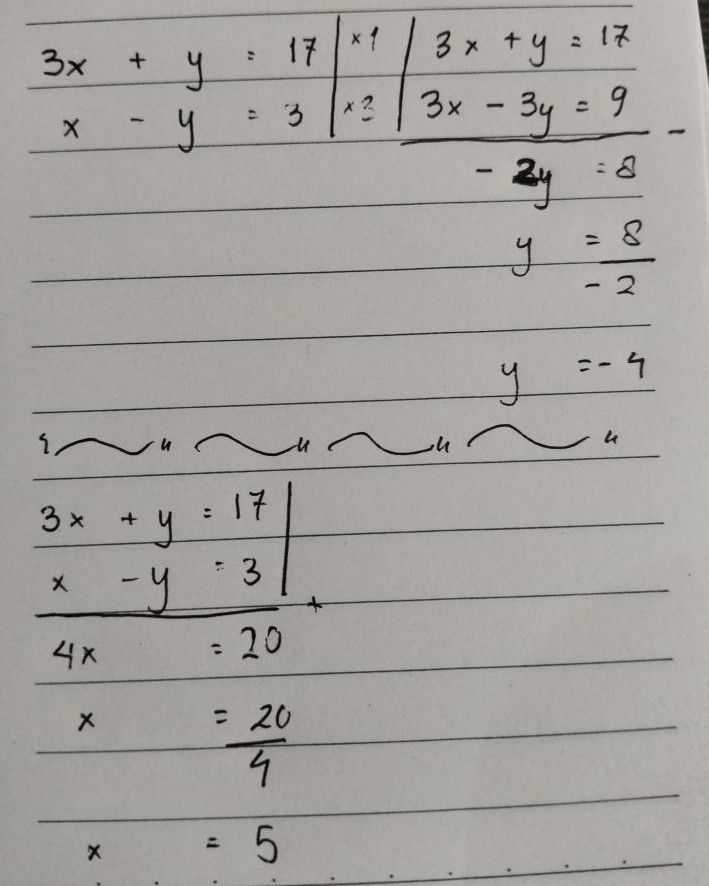 3x + y = 17 | ×1 | 3x + y = 17
x - y = 3 | ×3 | 3x - 3y = 9 -
- 2y = 8
y = 8
- 2
y = - 4
3x + y = 17
x - y = 3 +
4x = 20
x = 20
4
x = 5